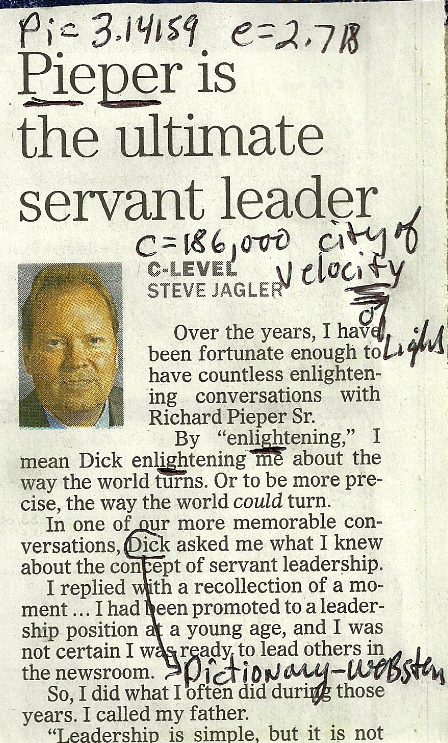 Pi= 3.14159 e=2.718
Pieper is
the ultimate
servant leader
C=186,000 city of
velocity
of
Light
C-LEVEL
STEVE JAGLER
Over the years, I have
been fortunate enough to
have countless enlighten-
ing conversations with
Richard Pieper Sr.
By “enlightening,” I
mean Dick enlightening me about the
way the world turns. Or to be more pre-
cise, the way the world could turn.
In one of our more memorable con-
versations, Dick asked me what I knew
about the concept of servant leadership.
I replied with a recollection of a mo-
ment ... I had been promoted to a leader-
ship position at a young age, and I was
not certain I was ready to lead others in
the newsroom.
Dictionary-Webster
So, I did what I often did during those
years. I called my father.
“Leadership is simple, but it is not